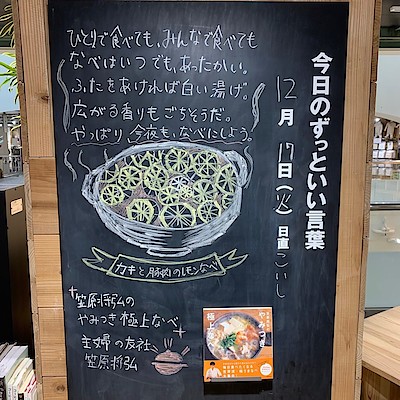 今日のずっといい言葉
12月17日(火) 日直 こいし
ひとりで食べても、みんなで食べても
なべはいつでも、あったかい。
ふたをあければ白い湯げ。
広がる香りもごちそうだ。
やっぱり、今夜も、なべにしよう。
カキと豚肉のレモンなべ
笠原将弘の
やみつき極上なべ
主婦の友社
笠原将弘